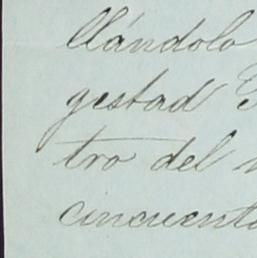 llándolo
gestad
tro del
cincuenta